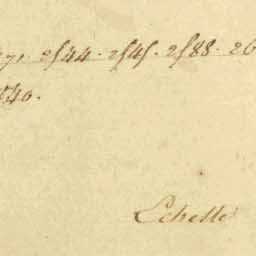 71. 2544. 2545. 2588. 26
40.
Echelle